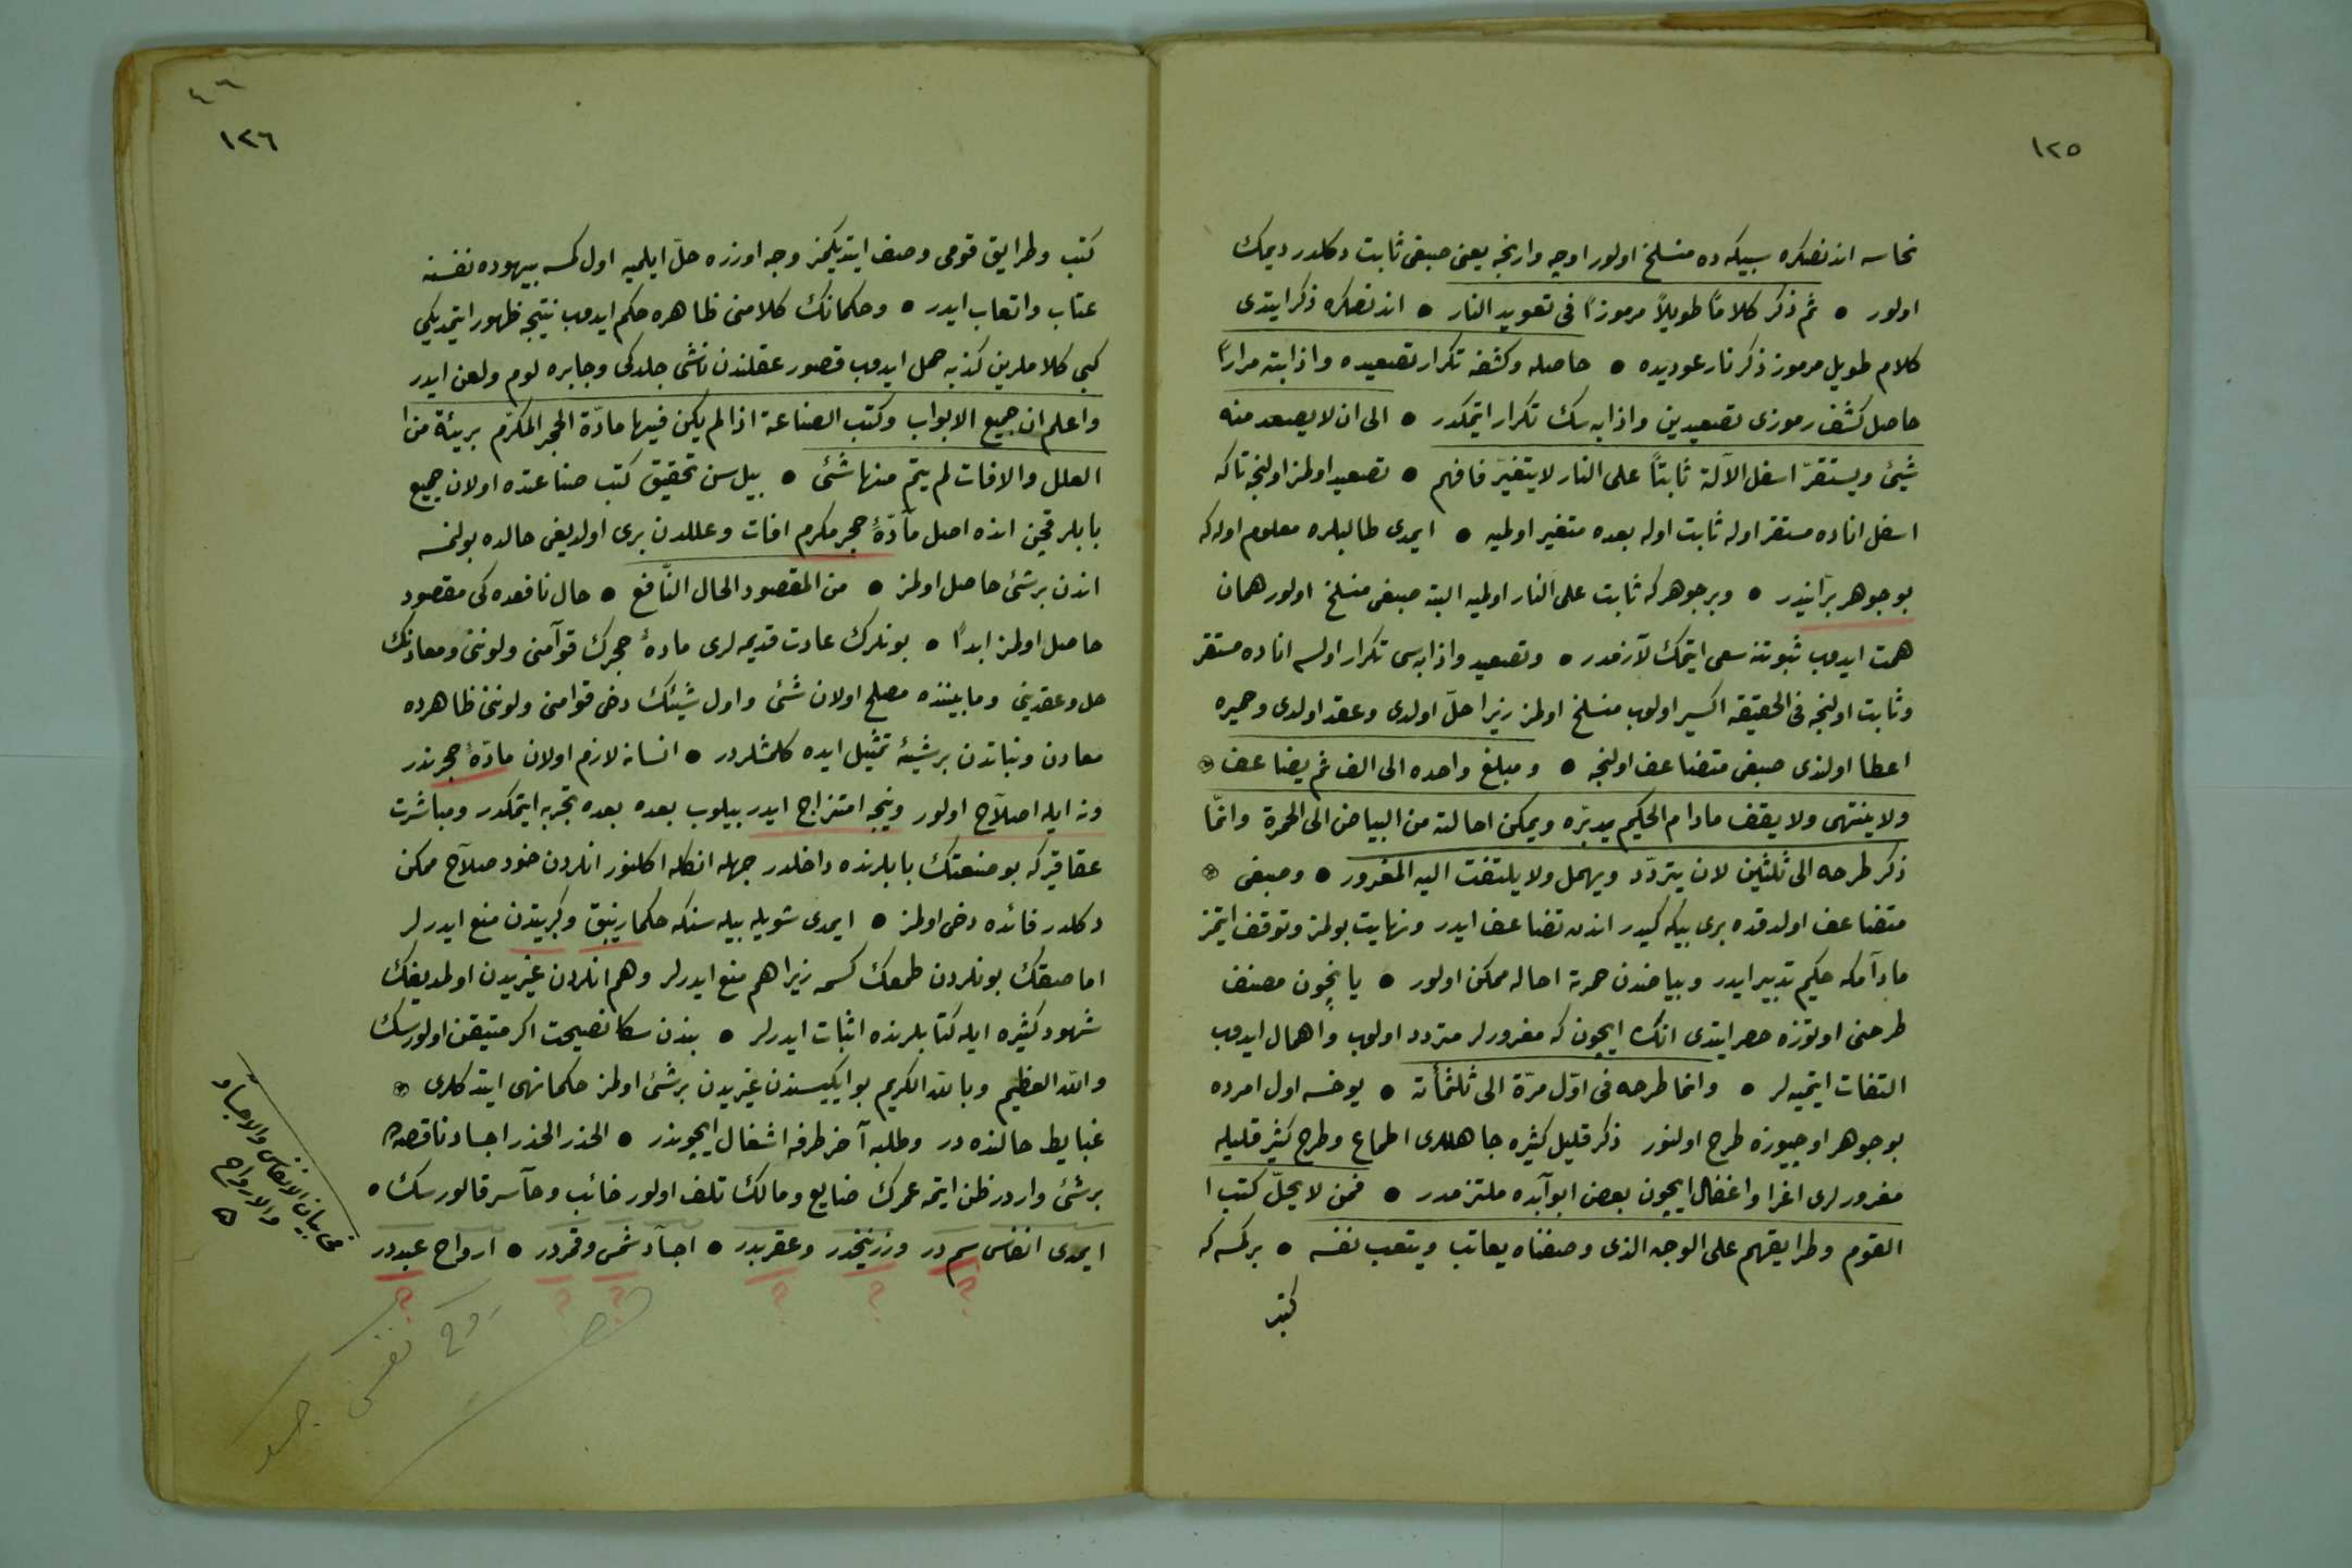 ١٢٥
نحاسه اندنصكره سبيكه ده منسلخ اولور اوجه وارنجه يعنى صبغى ثابت دكلدر ديمك
اولور • ثم ذكر كلامًا طويلاً مرموزًا فى تعويد النار • اندنصكره ذكر ايتدى
كلام طويل مرموز ذكر نار عوديده • حاصله وكشفه تكرار تصعيده واذابته مرارًا
حاصل كشف رموزى تصعيدين واذابه سك تكرار ايتمكدر • الى ان لا يصعد منه
شيئ ويستقرّ اسفل الآلة ثابتاً على النار لا يتغيّر فافهم • تصعيد اولمز اولنجه تاكه
اسفل اناده مستقر اوله ثابت اوله بعده متغير اولميه • ايمدى طالبلره معلوم اوله كه
بوجوهر برّانيدر • وبر جوهر كه ثابت على النار اولميه البته صبغى منسلخ اولور همان
همت ايدوب ثبوتنه سعى ايتمك لآزمدر • وتصعيد واذابه سى تكرار اولسه اناده مستقر
وثابت اولنجه فى الحقيقه اكسير اولوب منسلخ اولمز زيرا حلّ اولدى وعقد اولدى وحميره
اعطا اولندى صبغى متضاعف اولنجه • ومبلغ واحده الى الف ثم يضاعف
ولا ينتهى ولا يقف مادام الحكيم يدبّره ويمكن احالته من البياض الى الحمرة وانمّا
ذكر طرحه الى ثلثين لان يتردّد ويهمل ولا يلتفت اليه المغرور • وصبغى
متضاعف اولدقده برى بيكه كيدر اندن تضاعف ايدر ونهايت بولمز وتوقف ايتمز
مادآمكه حكيم تدبير ايدر وبياضدن حمرته احاله ممكن اولور • يا نيچون مصنف
طرحنى اوتوزه حصر ايتدى انك ايچون كه مغرورلر متردد اولوب واهمال ايدوب
التفات ايتميه لر • وانما طرحه فى اوّل مرّة الى ثلثمأته • يوخسه اول امرده
بوجوهر اوچيوزه طرح اولنور ذكر قليل كثيره جاهللرى اطماع وطرح كثير قليله
مغرورلرى اغرا واغفال ايچون بعض ابوآبده ملتزمدر • فمن لا يحلّ كتب ا
القوم وطرايقهم على الوجه الذى وصفناه يعاتب ويتعب نفسه • بركسه كه
كتب
١٢٦
كتب وطرايق قومى وصف ايتديكمز وجه اوزره حلّ ايلميه اول كمسه بيهوده نفسنه
عتاب واتعاب ايدر • وحكمانك كلامنى ظاهره حكم ايدوب نتيجه ظهور ايتمديكى
كبى كلاملرين كذبه حمل ايدوب قصور عقلندن ناشى جلدكى وجابره لوم ولعن ايدر
واعلم ان جميع الابواب وكتب الصناعة اذا لم يكن فيها مادّة الحجر المكرّم بريئة من ا
العلل والافات لم يتمّ منها شئ • بيل سن تحقيق كتب صناعتده اولان جميع
بابلر قچن انده اصل مآدّۀ حجر مكرم افات وعللدن برى اولديغى حالده بولنمسه
اندن برشئ حاصل اولمز • من المقصود الحال النّافع • حال نافعده كى مقصود
حاصل اولمز ابداً • بونلرك عادت قديمه لرى مادۀ حجرك قوآمنى ولوننى ومعادنك
حل وعقدينى ومابيننده مصلح اولان شئ واول شيئك دخى قوامنى ولوننى ظاهرده
معادن ونباتدن برشيئه تمثيل ايده كلمشلردر • انسانه لازم اولان مادّۀ حجر ندر
ونه ايله اصلآح اولور ونيجه امتزاج ايدر بيلوب بعده بعده تجربه ايتمكدر ومباشرت
عقاقير كه بوصنعتك بابلرنده داخلدر جهله انكله اكلنور انلردن خود صلآح ممكن
دكلدر فائده دخى اولمز • ايمدى شويله بيله سنكه حكما زيبق وكبريتدن منع ايدرلر
اما صقك بونلردن طمعك كسمه زيرا هم منع ايدرلر وهم انلردن غيريدن اولمديغك
شهود كثيره ايله كتابلرنده اثبات ايدرلر • بندن سكا نصيحت اكر متيقن اولورسك
والله العظيم وبالله الكريم بو ايكيسندن غيريدن برشئ اولمز حكما نهى ايتدكلرى
غبايط حالنده در وطلبه آخر طرفه اشغال ايچوندر • الحذر الحذر اجساد ناقصه ده
برشئ واردر ظن ايتمه عمرك ضايع ومالك تلف اولور خائب وخآسر قالورسك ه
ايمدى انفاس سم در وزرنيخدر وعقربدر • اجسآد شمس وقمردر • ارواح عبددر
فى بيان الانفاس والاجساد
والارواح
روح نفس جسد